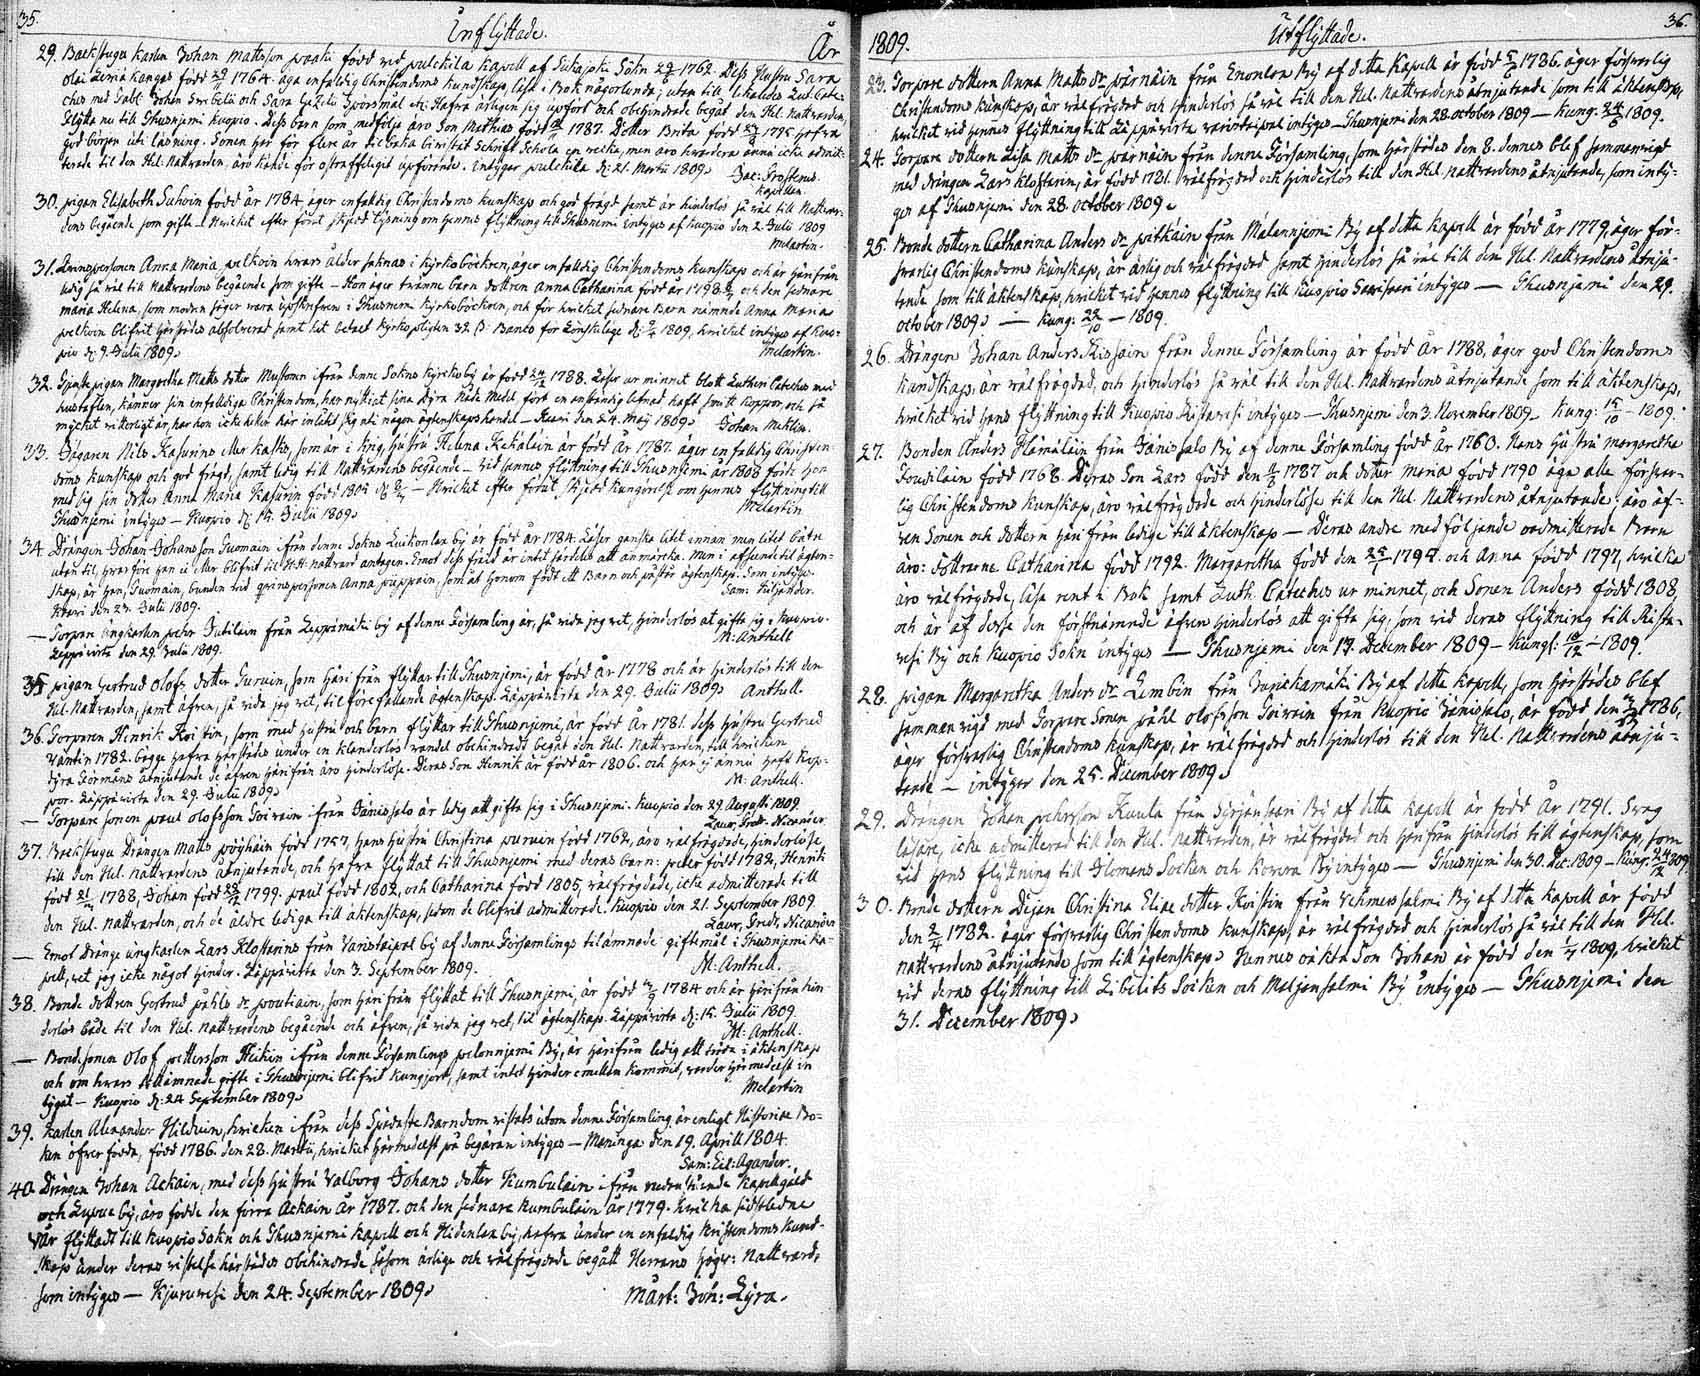 35.
Inflyttade.
År
29. Backstugu karlen Johan Mattsson paaki född vid pulckila kapell af Sikajocki Sokn 1762. Dess Hustru Sara
Olai född 1764. äga enfaldig Christendoms kundskap, läsa i Bok någorlunda; utan till Lutheri Cate-
ches med Johan Svebelii och Sara Spörsmål etc: Hafva ärligen sig upfört och obehindrade begåt den Hel. Nattvarden,
flytta nu till Thusnjemi Kuopio. Dess barn som medfölja äro Son Mathias född 1787. Dotter Brita född 1795 hafva
god början uti läsning.
terade til den Hel. Nattvarden, äro kände för ostraffeligit upförande. intygar pulckila d: 21. Martii 1809.
Zac: Frosterus.
Kapellan.
30. pigan Elisabeth Suhoin född år 1784 äger enfaldig Christendoms kunskap och god frägd samt är hinderlös så väl till Nattvar-
dens begående som gifte – Hvilcket efter förut skjedd Lysning om hennes flyttning till Thusnjemi intyges af Kuopio den 2. Julii 1809
Melartin.
31. Qvinspersonen Anna Maria pelkoin hvars ålder saknas i kyrko böcker, äger enfaldig Christendoms kunskap och är härifrån
ledig så väl till Nattvardens begående som gifte – Hon äger tvänne barn dottren Anna Catharina född år 1798 och den sednare
Maria Helena, som modren säger vara i Thusnjemi kyrkoböcker, och för hvilket sednare Barn nämnde Anna Maria
pelkoin blifvit härstädes absolverad samt betalt 1809, hvilcket intyges af Kuo-
pio d: 9. Julii 1809.
Melartin.
32. pigan Margretha Matts dotter Mustonen ifrån denne Sokns kyrckoby är född 1788. Läser ur minnet blott Lutheri Cateches med
hustaflan, känner sin enfaldiga Christendom, har nyttjat sina Dyra Nåde Medel fört en anständig lefnad haft smitt koppor, och så
mycket vitterligt är, har hon icke heller här inlåtit sig uti någon ägtenskaps handel – Kaavi den 24. Maij 1809.
Johan
33. Sågaren Nils Kasurins eller kasks, som är i Krig, hustru Helena Kekäläin är född år 1787. äger enfaldig Christen-
doms kunskap och god frägd, samt ledig till Nattvardens begående – Vid hennes flyttning till Thusnjemi år 1808 förde hon
med sig sin dotter Anna Maria Kasurin född 1805 – Hvilcket efter förut skjedd kungörelse om hennes flyttning till
Thusnjemi intyges – Kuopio d: 15. Julii 1809.
Melartin
34. Drängen Johan Johansson Tuomain ifrån denne Sokns Luikonlax by är född år 1784. Läser ganska litet innan men litet Cate
utan til, hvarföre han ej eller blifvit til H:H: Nattvard antagen. Emot dess frägd är intet särdeles att anmärka. Men i afseende til ägten-
skap, är han, Tuomain, bunden vid qvinspersonen Anna puppain, som af honom född ett Barn och påstår ägtenskap. Som intyges.
Kaavi den 23. Julii 1809.
Sam: Kiljander.
— Torpare ungkarlen pehr Jutilain från Leppämäki by af denne Församling är, så vida jag vet, hinderlös at gifta sig i Kuopio.
Leppävirta den 29. Julii 1809.
M: Anthell
35 pigan Gertrud Olofs dotter Turuin, som häri från flyttar till Thusnjemi, är född År 1778 och är hinderlös till den
Hel. Nattvarden, samt äfven, så vida jag vet, til förefallande ägtenskap. Läppävirta den 29. Julii 1809.
Anthell.
36. Torparen Henrik Koi tin, som med hustru och barn flyttar till Thusnjemi, är född År 1781. dess hustru Gertrud
Vantin 1782. begge hafva härstädes under en klanderlös vandel obehindradt begåt den Hel. Nattvarden, till hvilcken
dyra Förmåns åtnjutande de äfven härifrån äro hinderlöse. Deras Son Henrik är född år 1806. och har ej ännu haft kop-
por. Läppävirta den 29. Julii 1809.
M: Anthell.
— Torpare sonen paul olofsson Toivain ifrån Jänissalo är ledig att gifta sig i Thusnjemi. Kuopio den 29 Augusti 1809.
Laur. Fredr. Nicander
37. Backstugu Drängen Matts pöyhäin född 1757, hans hustru Christina puruin född 1762, äro välfrägdade, hinderlöse,
till den Hel. Nattvardens åtnjutande, och hafva flyttat till Thusnjemi med deras barn: peter född 1782, Henrik
född 1788, Johan född 1799. paul född 1802, och Catharina född 1805, välfrägdade, icke admitterade till
den Hel. Nattvarden, och de äldre lediga till äktenskap, sedan de blifvit admitterade. Kuopio den 21. September 1809
Laur. Fredr. Nicander
— Emot Dränge ungkarlen Lars Klosterins från Varistaipal by af denne Församlings tilämnade giftemål i Thusnjemi ka-
pell, vet jag icke något hinder. Läppävirta den 3. September 1809.
M: Anthell.
38. Bonde dottren Gertrud påhls dr poutiain, som härifrån flyttat till Thusnjemi, är född 1784 och är härifrån hin-
derlös både til den Hel. Nattvardens begående och äfven, så vida jag vet, til ägtenskap. Läppävirta d: 15. Julii 1809.
M: Anthell.
— Bonde sonen Olof pettersson Heikin ifrån denne Församlings pelonnjemi By, är härifrån ledig att träda i äktenskap
och om hvars tillämnade gifte i Thusnjemi blifvit kungjort, samt intet hinder emellan kommit, varder härmedelst in
tygat – Kuopio d: 24 September 1809.
Melartin
39. Karlen Alexander Hilduin, hvilcken ifrån dess Spädaste Barndom vistats utom denne Församling är enligt Historiæ Bo-
ken öfver födda, född 1786. den 28. Martii, hvilcket härmedelst på begäran intyges – Maninga den 19. Aprill 1804.
Sam: Eric: Agander.
40. Drängen Johan Ackain, med dess hustru Valborg Johans dotter Kumbulain ifrån nedanstående kapellgjäld
och Lapue by, äro födde den förra Ackain År 1787. och den sednare Kumbulain år 1779. hvilcka sidstledne
Vår flyttadt till Kuopio Sokn och Thusnjemi kapell och Hidenlax by, hafva under en enfaldig Kristendoms kund-
skap under deras vistelse härstädes obehindrade såsom ärlige och välfrägdade begått Herrans högv: Nattvard,
som intyges — Kjuruvesi den 24. September 1809.
Mårt: Joh: Lyra.
36.
1809.
Utflyttade.
23. Torpare dottern Anna Matts dr pärnäin från Enonlax By af detta Kapell är född 1786. äger försvarlig
Christendoms kunskap, är välfrägdad och hinderlös så väl till den Hel. Nattvardens åtnjutande som till äktenskap,
hvilcket vid hennes flyttning till Läppävirta Varistaipal intyges — Thusnjemi den 28. october 1809 — kung: 1809.
24. Torpare dottern Lisa Matts dr pärnäin från denne Församling, som härstädes den 8. dennes blef sammanvigd
med drängen Lars Klosterin, är född 1781. välfrägdad och hinderlös till den Hel. Nattvardens åtnjutande, som inty-
ges af Thusnjemi den 28 october 1809.
25. Bonde dottern Catharina Anders dr pitkäin från Mälannjemi By af detta kapell är född år 1779, äger för-
svarlig Christendoms kunskap, är ärlig och välfrägdad samt hinderlös så väl till den Hel. Nattvardens åtnju-
tande som till äktenskap, hvilcket vid hennes flyttning till Kuopio Savisaari intyges — Thusnjemi den 29.
october 1809. — kung: 22/10 — 1809.
26. Drängen Johan Anderss. Kissain från denne Församling är född år 1788, äger god Christendoms
kundskap: är välfrägdad, och hinderlös så väl till den Hel. Nattvardens åtnjutande som till äktenskap,
hvilcket vid hans flyttning till Kuopio Ristavesi intyges — Thusnjemi den 3. November 1809. Kung: 15/10 – 1809.
27. Bonden Anders Hämäläin från Jänissalo By af denne Församling född År 1760. Hans Hustru Margaretha
Tovilain född 1768. Deras Son Lars född den 1787 och dotter Maria född 1790 äga alle försvar-
lig Christendoms kunskap, äro välfrägdade och hinderlöse till den Hel. Nattvardens åtnjutande; äro äf-
ven Sonen och dottern häri från ledige till äktenskap — Deras andre medföljande oadmitterade Barn
äro: Döttrarne Catharina född 1792. Margaretha född den 1795 och Anna född 1797, hvilcka
äro välfrägdade, läsa rent i Bok samt Luth. Cateches ur minnet, och Sonen Anders född 1808,
och är af desse den förstnämnde äfven hinderlös att gifta sig, som vid deras flyttning till Rista-
vesi By och Kuopio Sokn intyges — Thusnjemi den 17. December 1809 — Kungl: 10/12 – 1809.
28. pigan Margaretha Anders dr Lembin från Junickamäki By af detta kapell, som härstädes blef
sammanvigd med Torpare Sonen påhl olofsson Toivain från Kuopio Jänissalo, är född den 1786,
äger försvarlig Christendoms kunskap, är välfrägdad och hinderlös till den Hel. Nattvardens åtnju-
tande — intyger den 25. December 1809.
29. Drängen Johan pehrsson Kaula från Syrjänsaari By af detta kapell är född År 1791. Svag
läsare, icke admitterad till den Hel. Nattvarden, är välfrägdad och härifrån hinderlös till ägtenskap, som
vid hans flyttning till Ilomans Socken och Kovera By intyges — Thusnjemi den 30. Dec: 1809 — Kung: 24/12 1809.
30. Bonde dottern Pijan Christina Elias dotter Koistin från Vehmersalmi By af detta Kapell är född
den 2/4 1782. äger försvarlig Christendoms kunskap, är välfrägdad och hinderlös så väl till den Hel.
Nattvardens åtnjutande som till ägtenskap. Hennes oäkta Son Johan är född den 1809, hvilcket
vid deras flyttning till Libelits Socken och Maljasalmi By intyges — Thusnjemi den
31. December 1809.